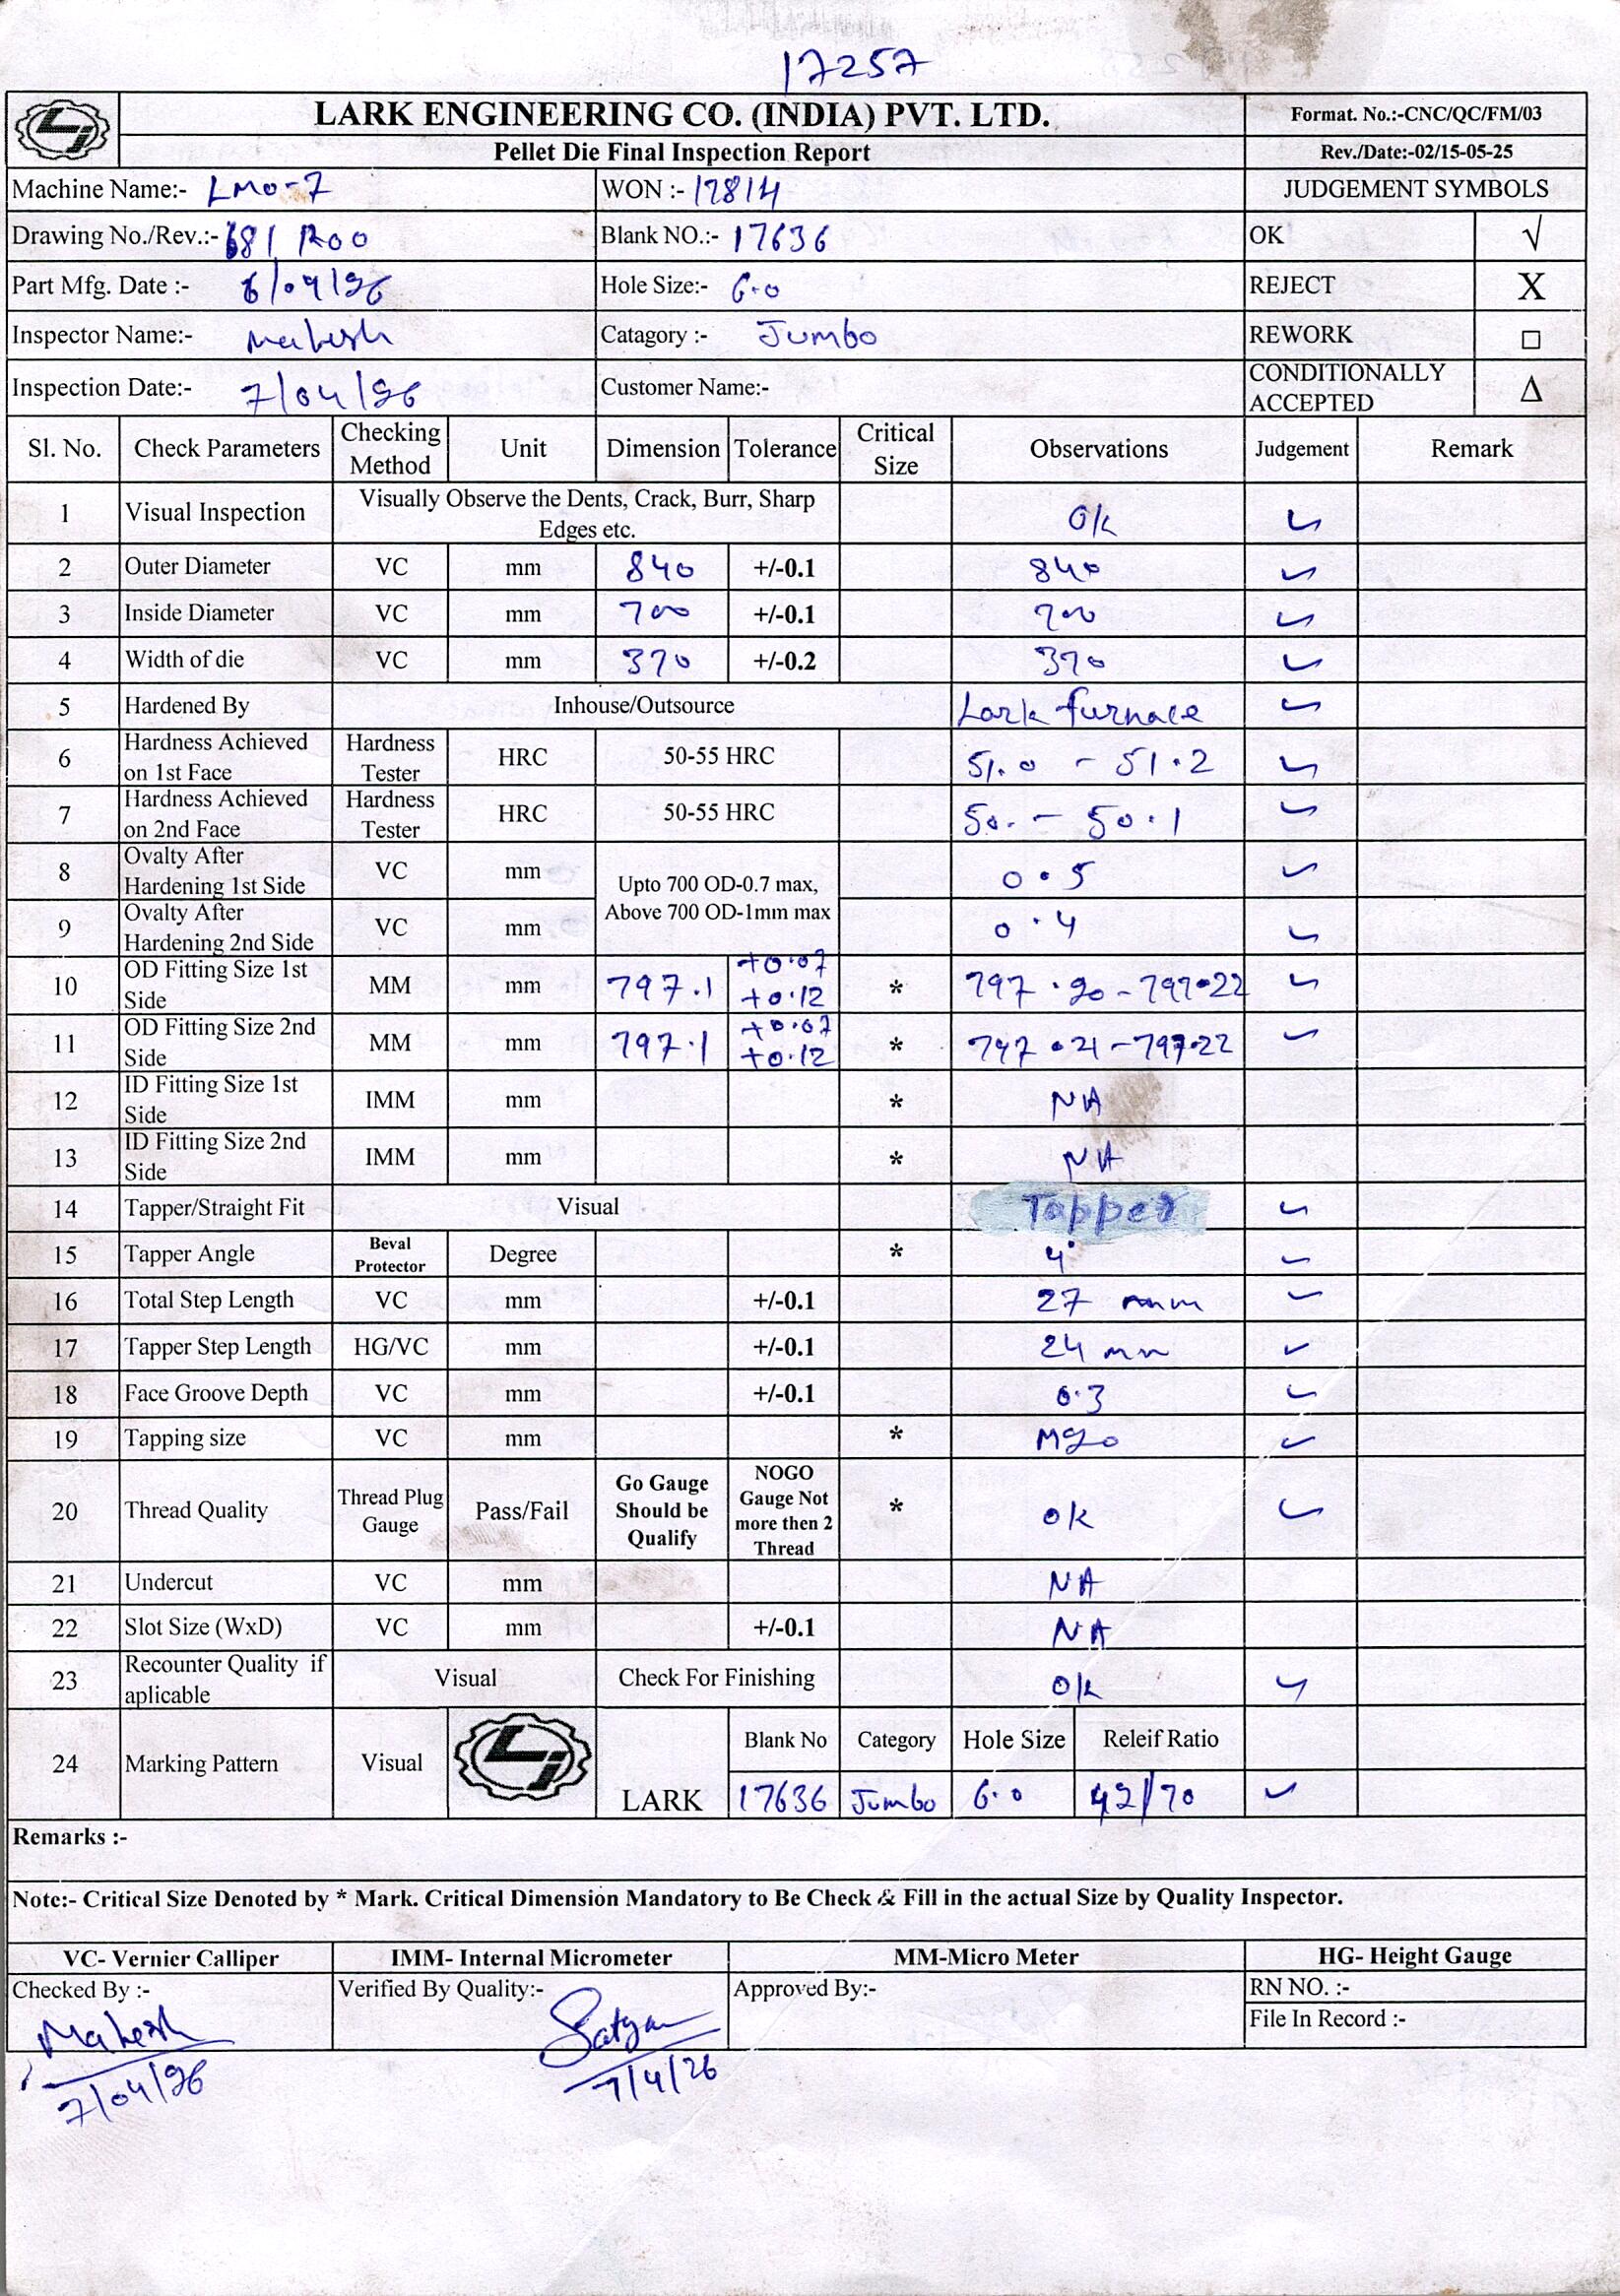 17257
LARK ENGINEERING CO. (INDIA) PVT. LTD. Format. No.:-CNC/QC/FM/03
Pellet Die Final Inspection Report Rev./Date:-02/15-05-25
Machine Name:- LMO-7 WON :- 17814 JUDGEMENT SYMBOLS
Drawing No./Rev.:- 681 R00 Blank NO.:- 17636 OK √
Part Mfg. Date :- 6/04/26 Hole Size:- 6.0 REJECT X
Inspector Name:- Mahesh Catagory :- Jumbo REWORK □
Inspection Date:- 7/04/26 Customer Name:- CONDITIONALLY ACCEPTED Δ
Sl. No. Check Parameters Checking Method Unit Dimension Tolerance Critical Size Observations Judgement Remark
1 Visual Inspection Visually Observe the Dents, Crack, Burr, Sharp Edges etc. Ok ✓
2 Outer Diameter VC mm 840 +/-0.1 840 ✓
3 Inside Diameter VC mm 700 +/-0.1 700 ✓
4 Width of die VC mm 370 +/-0.2 370 ✓
5 Hardened By Inhouse/Outsource Lark furnace ✓
6 Hardness Achieved on 1st Face Hardness Tester HRC 50-55 HRC 51.0 - 51.2 ✓
7 Hardness Achieved on 2nd Face Hardness Tester HRC 50-55 HRC 50. - 50.1 ✓
8 Ovalty After Hardening 1st Side VC mm Upto 700 OD-0.7 max, Above 700 OD-1mm max 0.5 ✓
9 Ovalty After Hardening 2nd Side VC mm 0.4 ✓
10 OD Fitting Size 1st Side MM mm 797.1 +0.07 +0.12 * 797.20 - 797.22 ✓
11 OD Fitting Size 2nd Side MM mm 797.1 +0.07 +0.12 * 797.21 - 797.22 ✓
12 ID Fitting Size 1st Side IMM mm * NA
13 ID Fitting Size 2nd Side IMM mm * NA
14 Tapper/Straight Fit Visual Tapper ✓
15 Tapper Angle Beval Protector Degree * 4° ✓
16 Total Step Length VC mm +/-0.1 27 mm ✓
17 Tapper Step Length HG/VC mm +/-0.1 24 mm ✓
18 Face Groove Depth VC mm +/-0.1 0.3 ✓
19 Tapping size VC mm * M20 ✓
20 Thread Quality Thread Plug Gauge Pass/Fail Go Gauge Should be Qualify NOGO Gauge Not more then 2 Thread * ok ✓
21 Undercut VC mm NA
22 Slot Size (WxD) VC mm +/-0.1 NA
23 Recounter Quality if aplicable Visual Check For Finishing Ok ✓
24 Marking Pattern Visual LARK Blank No Category Hole Size Releif Ratio
17636 Jumbo 6.0 42/70 ✓
Remarks :-
Note:- Critical Size Denoted by * Mark. Critical Dimension Mandatory to Be Check & Fill in the actual Size by Quality Inspector.
VC- Vernier Calliper IMM- Internal Micrometer MM-Micro Meter HG- Height Gauge
Checked By :- Verified By Quality:- Approved By:- RN NO. :-
File In Record :-
Mahesh Satyam
7/04/26 7/4/26